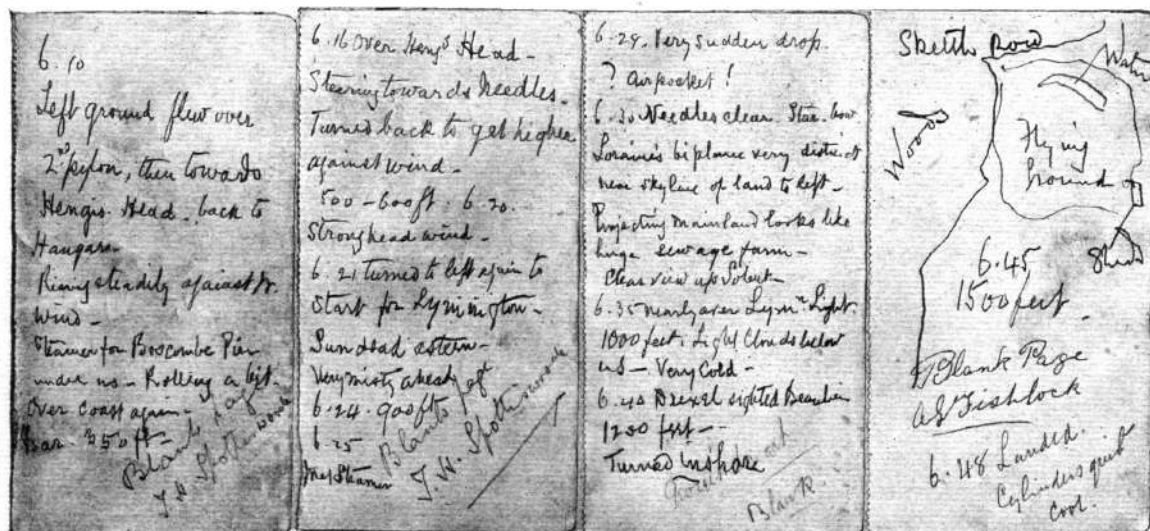 6.10
Left ground flew over
2nd pylon, then towards
Hengis. Head. back to
Hangars.
Rising steadily against
wind -
Steamer for Boscombe Pier
under us - Rolling a bit.
Over coast again -
Bar. 350 ft -
Blank page
J. H. Spottiswoode
6.16 Over Hengs Head -
Steering towards Needles.
Turned back to get higher
against wind -
500 - 600 ft. 6.20.
Strong head wind -
6.21 turned to left again to
start for Lymington -
Sun dead astern -
Very misty ahead
6.24. 900 fts
6.25
Steamer
Blank page
J. H. Spottiswoode
6.29. Very sudden drop.
? Air pocket!
6.30 Needles clear Star. bow
Loraine's biplane very distinct
near skyline of land to left -
Projecting mainland looks like
huge sewage farm -
Clear view up Solent -
6.35 nearly over Lymn Light.
1000 feet. Light Clouds below
us - Very Cold -
6.40 Drexel sighted Beaulieu
1200 feet -
Turned Inshore
Blank
Sketch
Water
Woods
Flying
Ground
Sheds
6.45
1500 feet
Blank Page
AG Fishlock
6.48 Landed.
Cylinders quite
cool.